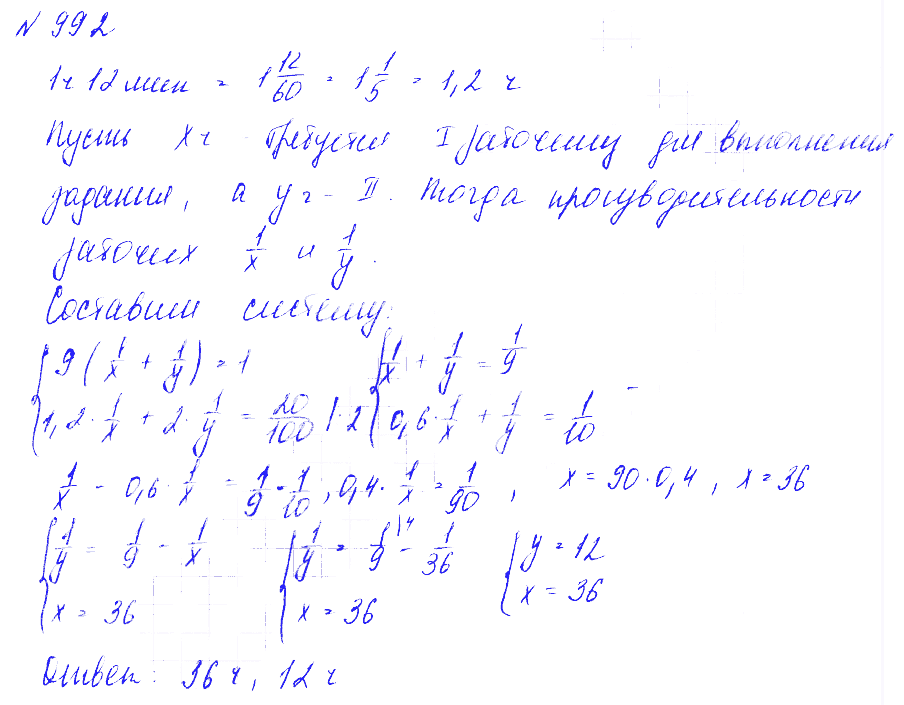 N 992
1ч 12 мин = 1 12/60 = 1 1/5 = 1,2 ч
Пусть x ч требуется I рабочему для выполнения
задания, а y ч - II. Тогда производительности
рабочих 1/x и 1/y.
Составим систему:
{ 9(1/x + 1/y) = 1 { 1/x + 1/y = 1/9
{ 1,2·1/x + 2·1/y = 20/100 |:2 { 0,6·1/x + 1/y = 1/10
1/x - 0,6·1/x = 1/9 - 1/10, 0,4·1/x = 1/90, x = 90·0,4, x = 36
{ 1/y = 1/9 - 1/x { 1/y = 1/9 |4 - 1/36 { y = 12
{ x = 36 { x = 36 { x = 36
Ответ: 36 ч, 12 ч